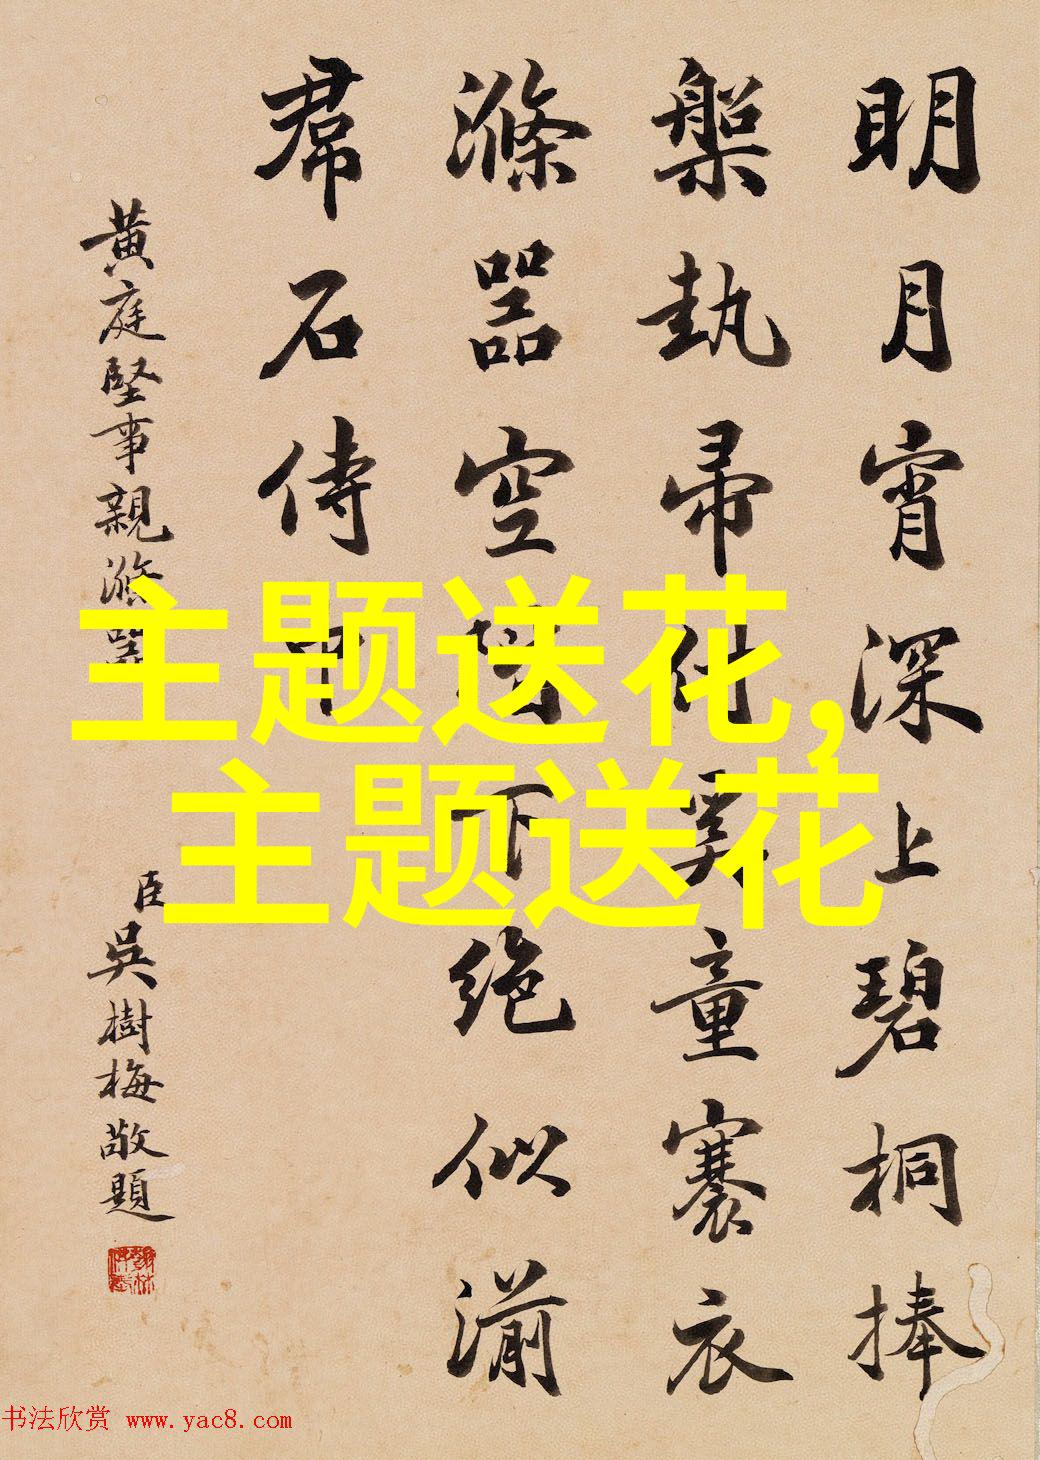 明月宵深上碧桐捧
槃執帚付奚童褰衣
滌器空
下絶似湔
帬石侍中
黃庭堅事親滌器
臣吳樹梅敬題
主题送花,
主题送花
书法欣赏 www.yac8.com